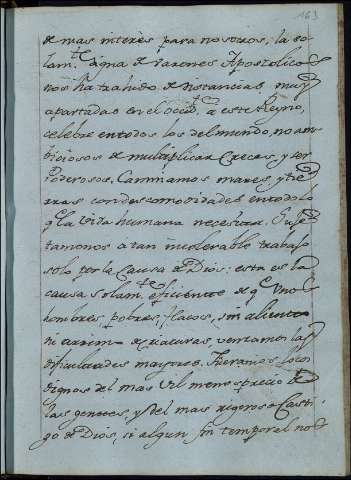 163
de mas interes para nosotros; la so-
lam.te a ma de varones Apostolicos
nos ha trahido de distancias, muy
apartadas en el occid.te a este Reyno,
celebre en todos los del mundo, no am-
biciosos de multiplicar Creces, y ser
Poderosos. Caminamos mares, y tier-
ras con descomodidades en todo lo
q.e la vida humana necesita. Suje-
tamonos a tan intolerable trabajo
solo por la Causa de Dios: esta es la
causa solam.te eficiente de q.e Unos
hombres pobres, flacos, sin aliento
ni arrimo de criaturas, vensamos las
dificultades mayores. Fueramos locos
dignos del mas vil menosprecio de
las gentes, y del mas rigoroso Casti-
go de Dios, si algun fin temporal nos